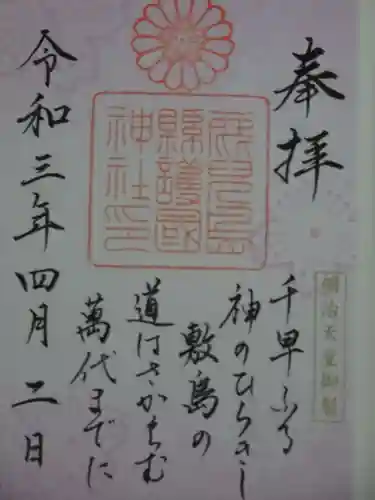 奉拝
鹿児島
縣護國
神社印
明治天皇御製
千早ふる
神のひらきし
敷島の
道はさかえむ
萬代までに
令和三年四月二日